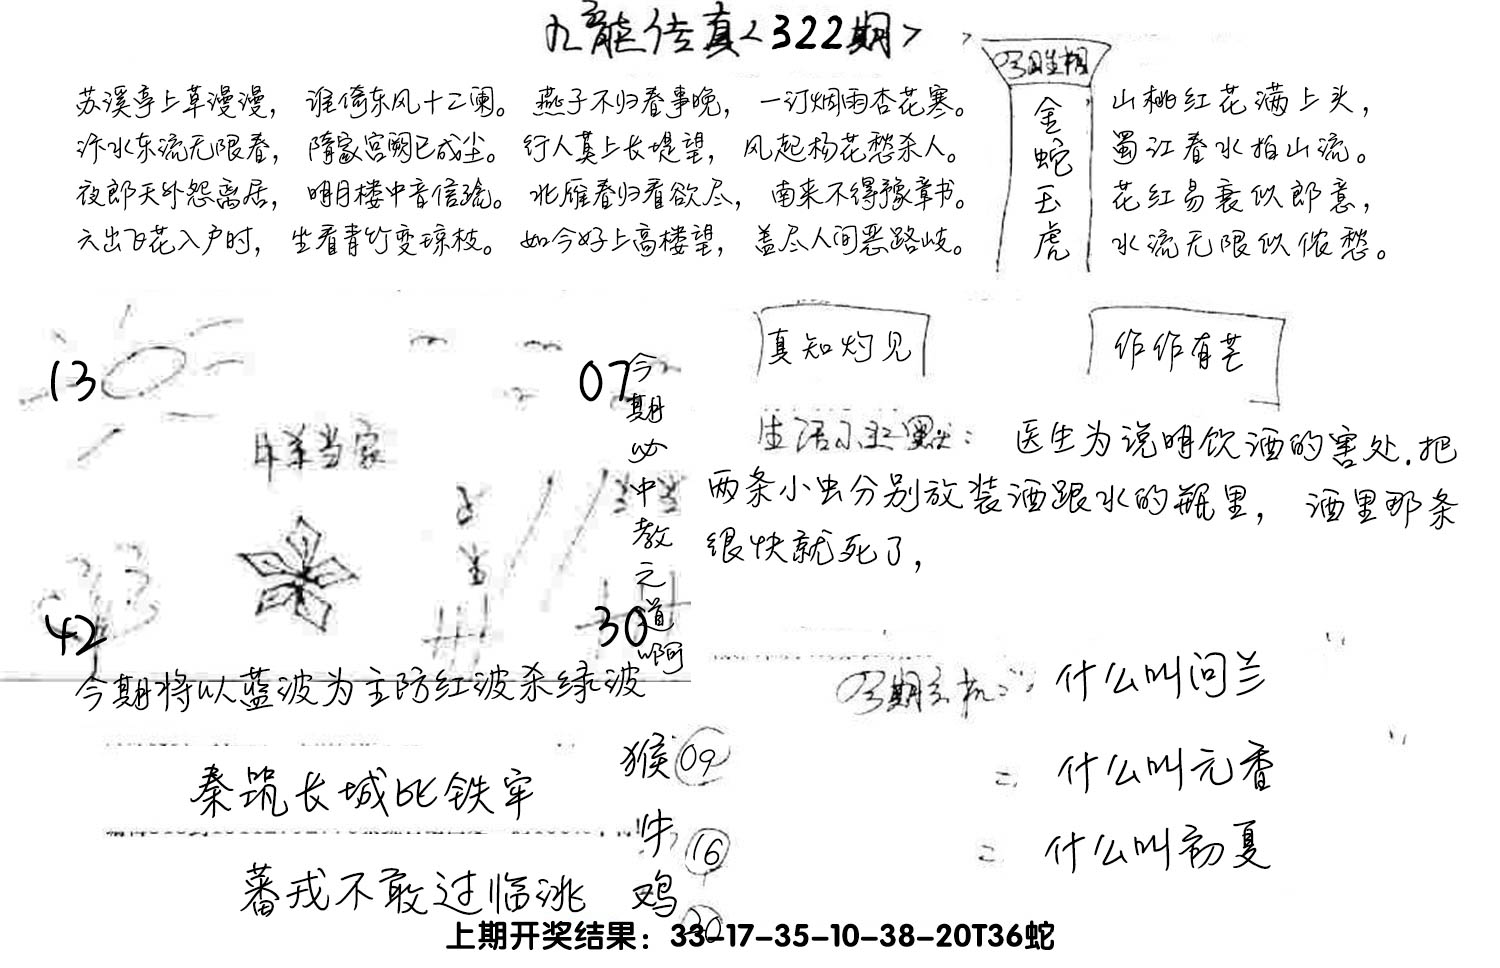 九龍传真<322期>
今日生相
金蛇玉虎
苏溪亭上草漫漫，谁倚东风十二阑。燕子不归春事晚，一汀烟雨杏花寒。
汴水东流无限春，隋家宫阙已成尘。行人莫上长堤望，风起杨花愁杀人。
夜郎天外怨离居，明月楼中音信疏。北雁春归看欲尽，南来不得豫章书。
六出飞花入户时，坐看青竹变琼枝。如今好上高楼望，盖尽人间恶路岐。
山桃红花满上头，
蜀江春水拍山流。
花红易衰似郎意，
水流无限似侬愁。
13
07
今期必中教元道啊
当家
42
30
今期将以蓝波为主防红波杀绿波
真知灼见
作作有芒
生活小幽默：医生为说明饮酒的害处.把
两条小虫分别放装酒跟水的瓶里，酒里那条
很快就死了，
今期玄机: 什么叫问兰
二 什么叫元香
二 什么叫初夏
秦筑长城比铁牢
蕃戎不敢过临洮
猴 09
牛 16
鸡 30
上期开奖结果：33-17-35-10-38-20T36蛇